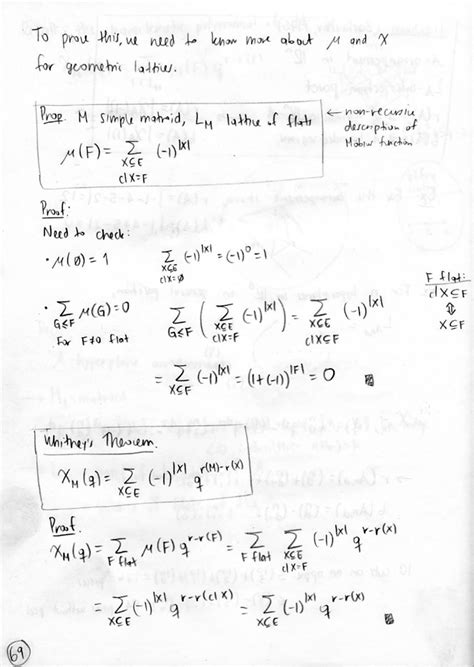 To prove this, we need to know more about μ and χ
for geometric lattices.
Prop. M simple matroid, L_M lattice of flats
μ(F) = Σ_{X⊆E, cl X=F} (-1)^{|X|}
← non-recursive
description of
Möbius function
Proof:
Need to check:
· μ(∅) = 1    Σ_{X⊆E, cl X=∅} (-1)^{|X|} = (-1)^0 = 1
· Σ_{G≤F} μ(G) = 0    Σ_{G≤F} ( Σ_{X⊆E, cl X=G} (-1)^{|X|} ) = Σ_{X⊆E, cl X⊆F} (-1)^{|X|}
for F≠0 flat
F flat:
cl X⊆F
⇕
X⊆F
= Σ_{X⊆F} (-1)^{|X|} = (1+(-1))^{|F|} = 0
Whitney's Theorem
χ_M(q) = Σ_{X⊆E} (-1)^{|X|} q^{r(M)-r(X)}
Proof.
χ_M(q) = Σ_{F flat} μ(F) q^{r-r(F)} = Σ_{F flat} Σ_{X⊆E, cl X=F} (-1)^{|X|} q^{r-r(X)}
= Σ_{X⊆E} (-1)^{|X|} q^{r-r(cl X)} = Σ_{X⊆E} (-1)^{|X|} q^{r-r(X)}
69